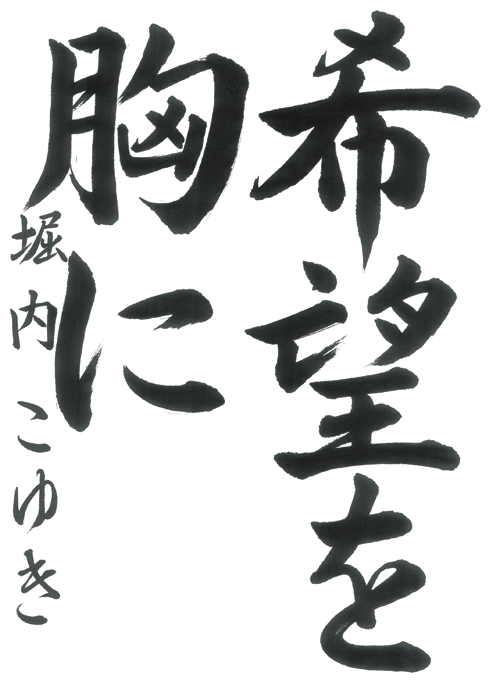 希望を
胸に
堀内こゆき